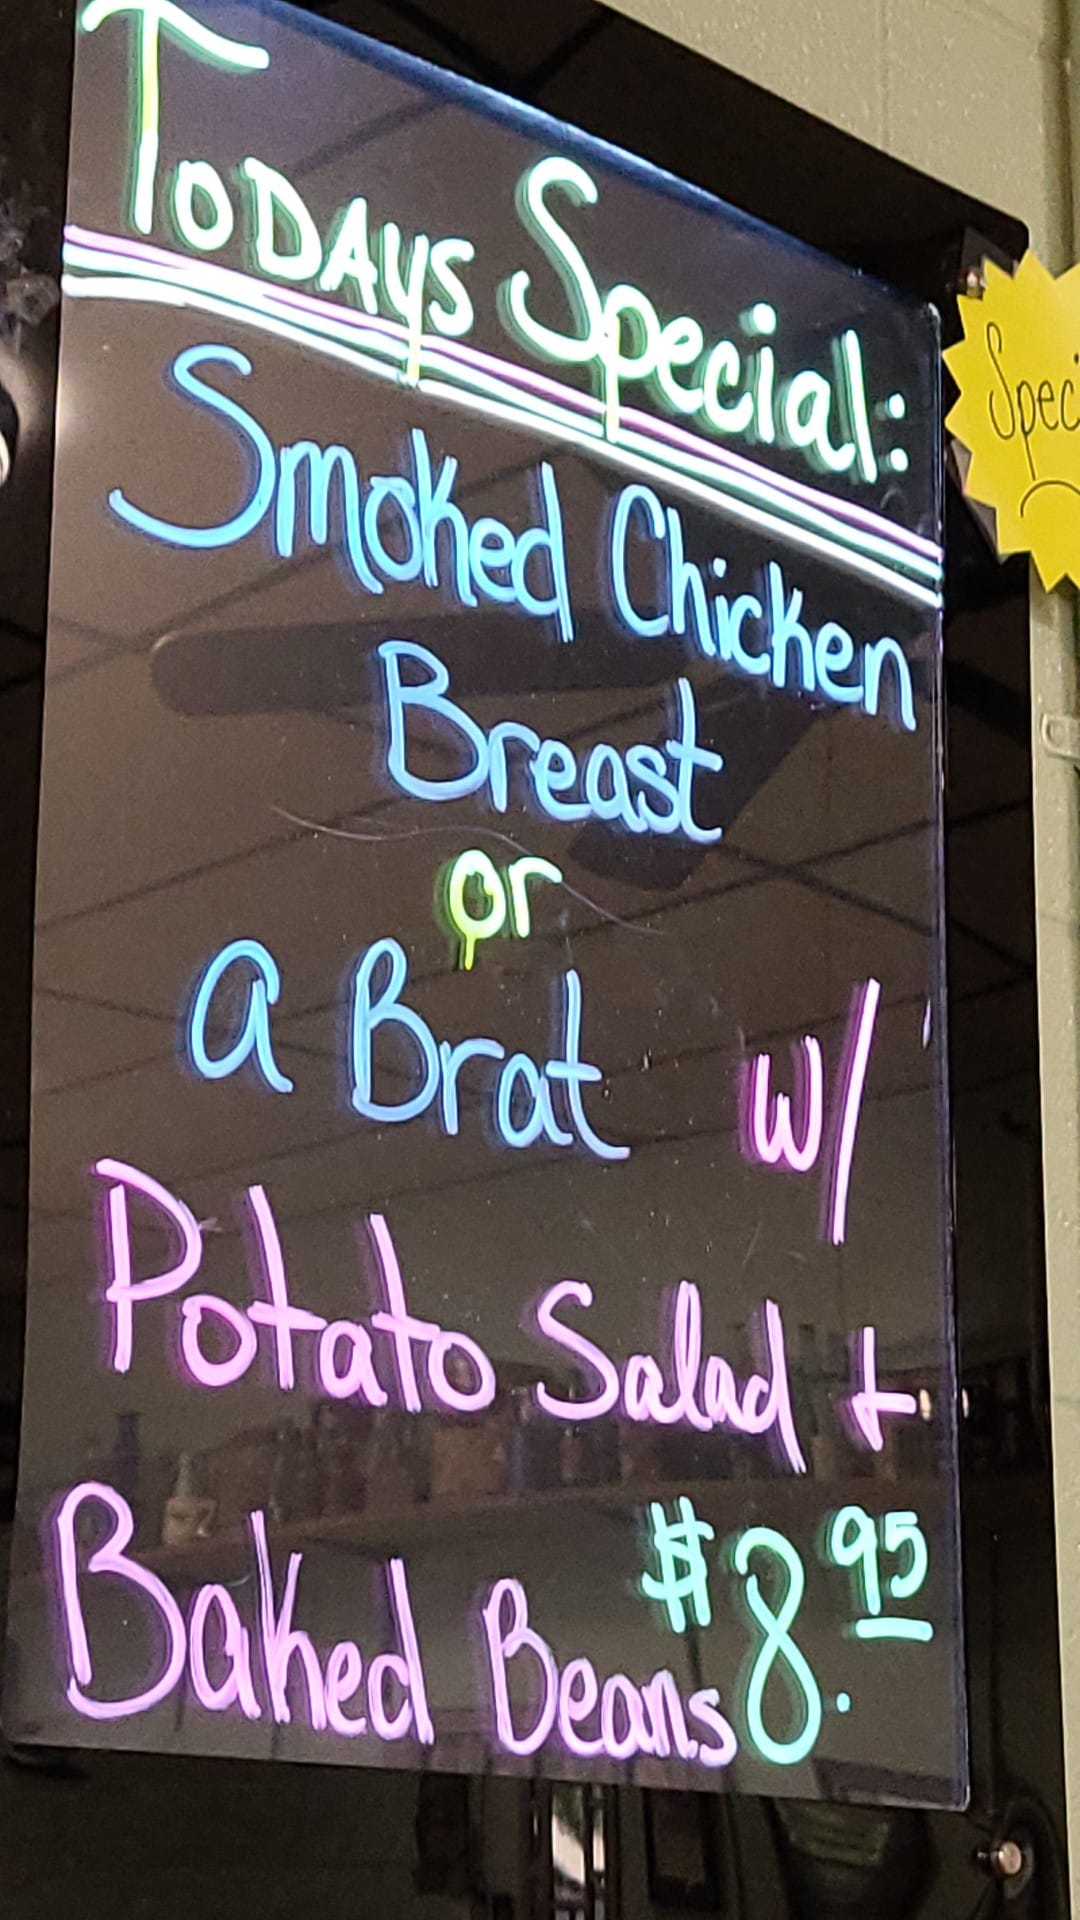 Todays Special:
Smoked Chicken
Breast
or
a Brat w/
Potato Salad +
Baked Beans $8.95